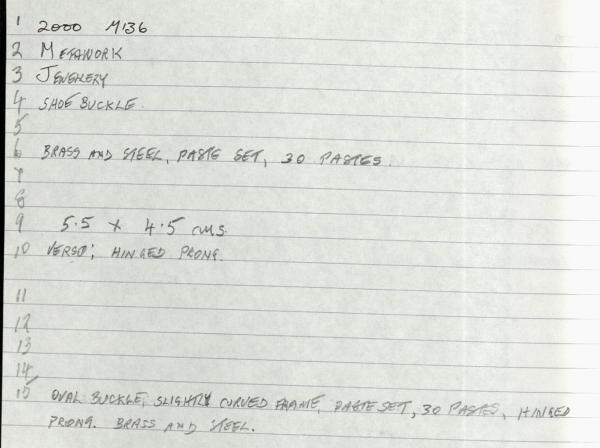 1 2000 M136
2 METAWORK
3 JEWELERY
4 SHOE BUCKLE.
5
6 BRASS AND STEEL, PASTE SET, 30 PASTES.
7
8
9 5.5 x 4.5 cms.
10 VERSO; HINGED PRONG.
11
12
13
14
15 OVAL BUCKLE, SLIGHTLY CURVED FRAME, PASTE SET, 30 PASTES, HINGED
PRONG. BRASS AND STEEL.